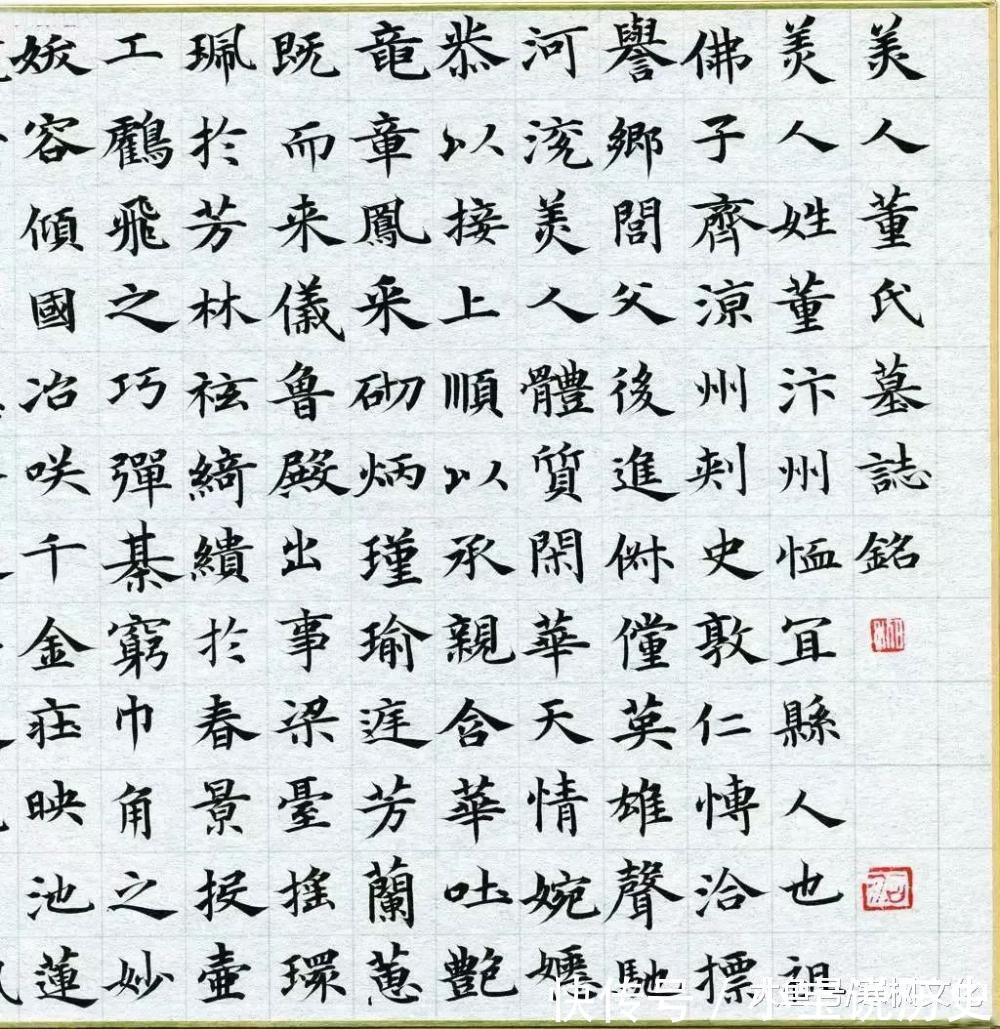 美人董氏墓誌銘
美人姓董汴州恤冝縣人也祖
佛子齊涼州刺史敦仁博洽摽
譽鄉閭父後進俶儻英雄聲馳
河渷美人體質閑華天情婉嫕
恭以接上順以承親含華吐艷
竜章鳳采砌炳瑾瑜庭芳蘭蕙
既而来儀魯殿出事梁臺搖環
珮於芳林袨綺繢於春景投壺
工鸖飛之巧彈棊窮巾角之妙
妖容傾國冶咲千金莊映池蓮
快传号/